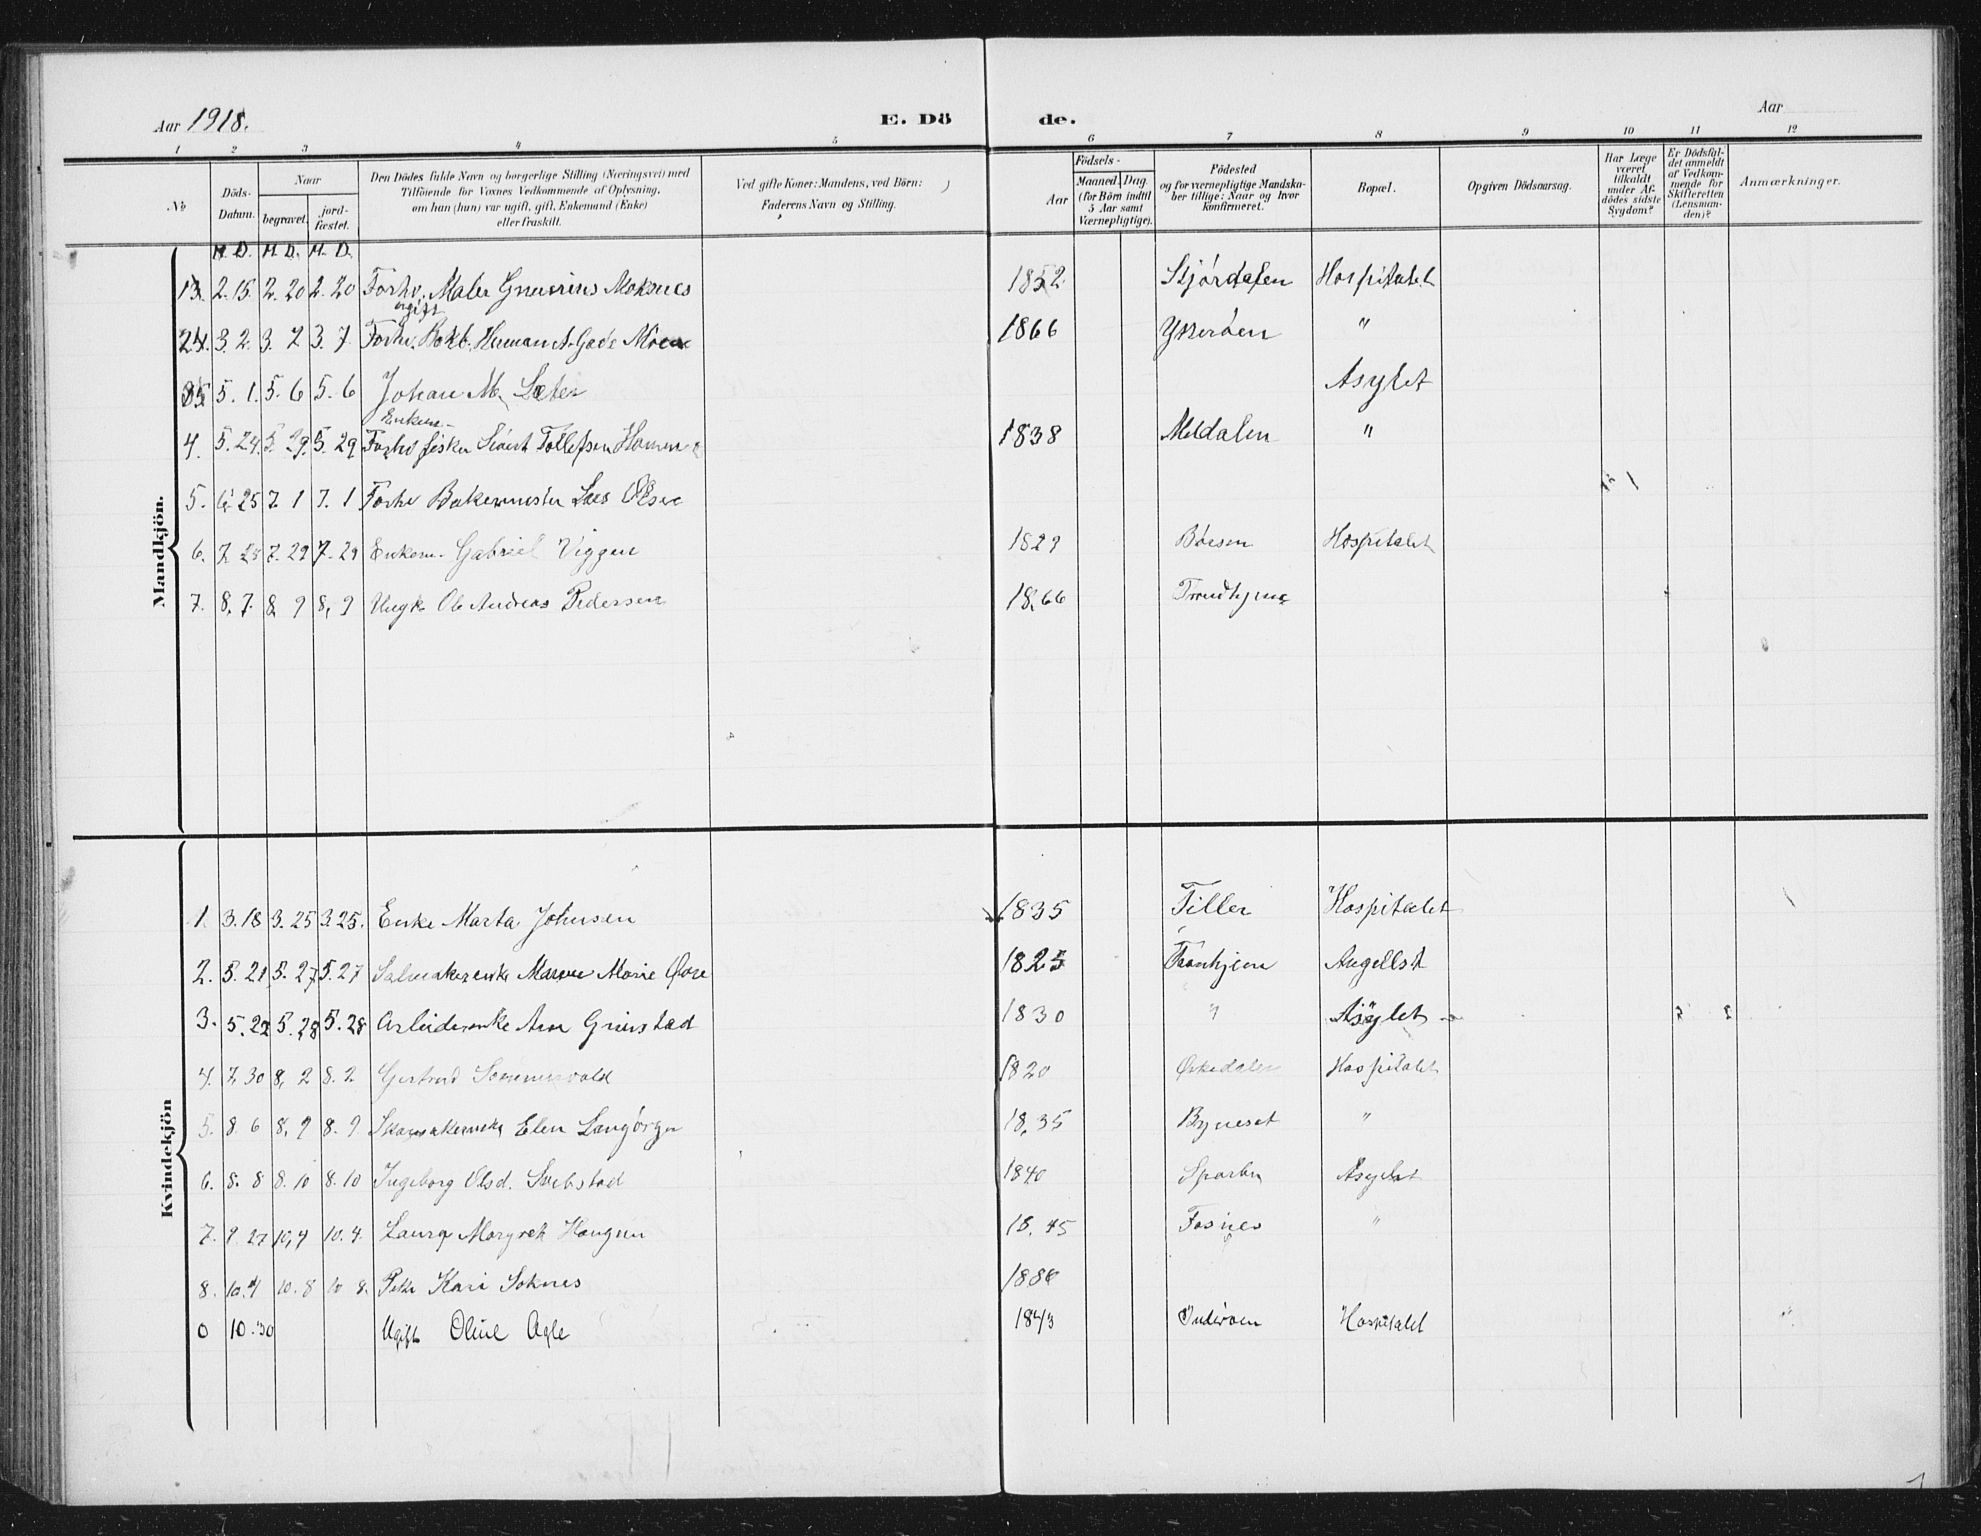 Aar 1918.
E. Dö de.
Aar
1 2 3 4 5 6 7 8 9 10 11 12
No
Döds-Datum.
Naar
begravet.
jord-fæstet.
Den Dödes fulde Navn og borgerlige Stilling (Næringsvei) med
Tilföiende for Voxnes Vedkommende af Oplysning,
om han (hun) var ugift, gift, Enkemand (Enke)
eller fraskilt.
Ved gifte Koner: Mandens, ved Börn:
Faderens Navn og Stilling.
Födsels-
Aar
Maaned. Dag.
(for Börn indtil
5 Aar samt
Værnepligtige).
Födested
og for værnepligtige Mandska-
ber tillige: Naar og hvor
konfirmeret.
Bopæl.
Opgiven Dödsaarsag.
Har Læge
været
tilkaldt
under Af-
dödes sidste
Sygdom?
Er Dödsfal-
det anmeldt
af Vedkom-
mende for
Skifteretten
(Lensman-
den)?
Anmærkninger.
Mandkjön.
M. D. M. D. M. D.
2.15. 2.20 2.20 Forhv. Maler Moksnes 1852 Stjørdalen Hospitalet
ugift
3.2. 3. 7 3.7 Forhv. Bokb. Herman A. Gade Möen 1866 Ytterøen "
5.1. 5.6 5.6 Johan M. Sæter Asylet
Enkem.
4. 5.24. 5.29. 5.29 Forhv fisker Sivert Tollefsen 1838 Meldalen "
5. 6.25 7.1 7.1 Forhv Bakermester Olsen
6. 7.29 7.29 Enkem. Gabriel Viggen 1829 Børsen Hospitalet
7. 8.7. 8.9 8.9 Ungk. Ole Andreas Pedersen 1866 Trondhjem
Kvindekjön
1. 3.18 3.25 3.25. Enke Marta Johnsen 1835 Tiller Hospitalet
2. 5.21 5.27 5.27 Marie 1825 Tronhjem Angellst
3. 5.22 5.28 5.28 Arbeiderenke Grinstad 1830 " Asylet
4. 7.30 8.2 8.2 Gertrud Sommervold 1820 Orkedalen Hospitalet
5. 8.6 8.9 8.9 Skomakerenke Elen Langørgen 1835 Bynesset "
6. 8.8 8.10 8.10 Ingeborg Olsd. 1840 Sparbu Asylet
7. 9.27 10.4 10.4. Laura Margrete Haugen 1845 Fosnes "
8. 10.4 10.8 10 8. Kari Soknes
10.30 Ugift Oline Agle 1843 Inderøen Hospitalet